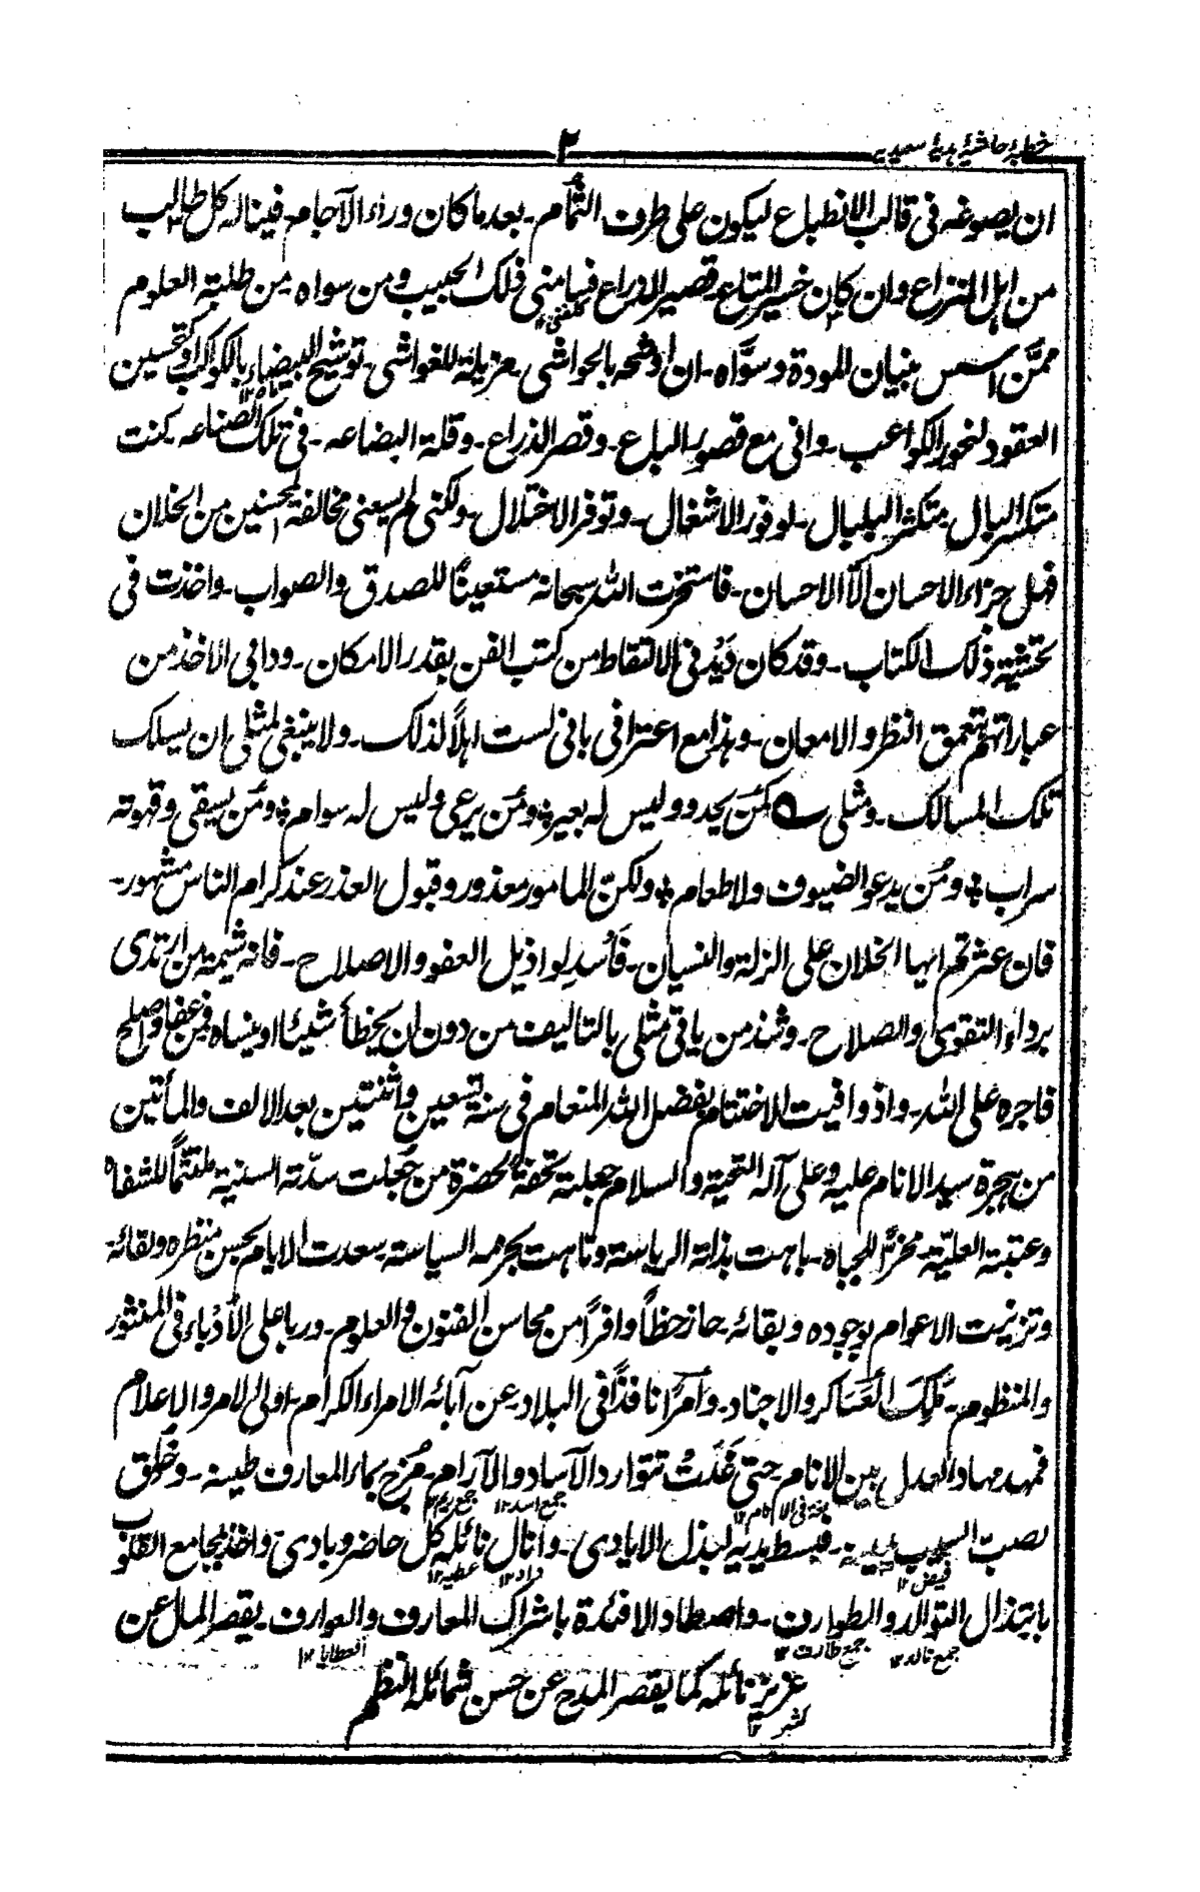 خطبۂ حاشیۂ ہدیۂ سعیدیہ
٢
ان یصوغہ فی قالب الانطباع لیکون علی طرف الثمام۔ بعد ما کان وراء الآجام۔ فینالہ کل طالب
من اہل النزاع وان کان خسیر المتاع قصیر الذراع فسامنی ذلک الحبیب ومن سواہ۔ من طلبۃ العلوم
کلفنی ١٢
ممَّن اسس بنیان المودۃ وسوَّاہ۔ ان اوشحہ بالحواشی۔ مزیلۃ للغواشی توشیح البیضاء بالکواکب وتحسین
العقود لنحور الکواعب۔ وانی مع قصور الباع۔ وقصر الذراع۔ وقلۃ البضاعہ۔ فی تلک الصناعہ۔ کنت
متکسر البال متکثر البلبال۔ لوفور الاشغال۔ وتوفر الاختلال۔ ولکنی لم یسعنی مخالفۃ المحسنین من الخلان
فہل جزاء الاحسان الّا الاحسان۔ فاستخرت اللہ سبحانہ مستعینًا للصدق والصواب۔ واخذت فی
تحشیۃ ذلک الکتاب۔ وقد کان دَیْدنی الالتقاط من کتب الفن بقدر الامکان۔ ودابی الاخذ من
عباراتہم بتعمق النظر والامعان۔ وہذا مع اعترافی بانی لست اہلًا لذلک۔ ولا ینبغی لمثلی ان یسلک
تلک المسالک۔ ومثلی ؎ کمَنْ یحدو ولیس لہ بعیر؛ ومَن یرعی ولیس لہ سوام؛ ومَن یسقی وقہوتہ
سراب؛ ومَن یدعو الضیوف ولا طعام؛ ولکنّ المامور معذور وقبول العذر عند کرام الناس مشہور۔
فان عثرتم ایہا الخلان علی الزلۃ والنسیان۔ فَأسْدِلوا ذیل العفو والاصلاح۔ فانہ شیمۃ من ارتدی
برداء التقوی والصلاح۔ وشذ من یاتی مثلی بالتالیف من دون ان یخطأ شیئا او ینساہ فمن عفا واصلح
فاجرہ علی اللہ۔ واذ وافیت للاختتام بفضل اللہ المنعام فی سنۃ تسعین واثنتین بعد الالف والمأتین
من ہجرۃ سید الانام علیہ وعلی آلہ التحیۃ والسلام جعلتہ تحفۃً لحضرۃ من جُعلت سدّتہ السنیۃ ملتثمًا للشفاہ
وعتبتہ العلیّۃ مخرًّا للجباہ۔ باہت بذاتہ الریاسۃ وتاہت بحرمہ السیاسۃ۔ سعدت الایام بحسن منظرہ ولقائہ۔
وتزینت الاعوام بوجودہ وبقائہ۔ حاز حظًّا وافرًا من محاسن الفنون والعلوم۔ وربا علی الأدباء فی المنثور
والمنظوم۔ مَلِک العَسَاکر والاجناد۔ وأمرًا نافذًا فی البلاد۔ عن آبائہ الامراء الکرام۔ اولی الامر والاعلام
فمہد مہاد العدل بین الانام حتی غَدَتْ تتوارد الآساد والآرام۔ مُزج بماء المعارف طینہ۔ وخُلق
جمع اسد ١٢ جمع ریم ١٢
لصب السیوب یمینہ۔ فبسط یدیہ لبذل الایادی۔ وانال نائلہ کل حاضر وبادی واخذ بمجامع القلوب
فیض ١٢ داد ١٢ عطیہ ١٢
بابتذال التوالد والطوارف۔ واصطاد الافئدۃ باشراک المعارف والعوارف۔ یقصر المل عن
جمع تالد ١٢ جمع طارف ١٢ العطایا ١٢
غزیر نائلہ کما یقصر المدح عن حسن شمائلہ النظم
کثیر ١٢